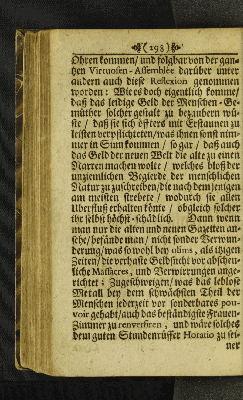 (198)
Ohren kommen/ und folgbar von der gan-
tzen Virtuosen-Assemblée darüber unter
andern auch diese Reflexion genommen
worden: Wie es doch eigentlich komme/
daß das leidige Geld der Menschen-Ge-
müther solcher gestalt zu bezaubern wü-
ste/ daß sie sich öffters mit Erstaunen zu
leisten verpflichteten/ was ihnen sonst nim-
mer in Sinn kommen/ so gar/ daß auch
das Geld der neuen Welt die alte zu einen
Narren machen wolte/ welches bloß der
unziemlichen Begierde der menschlichen
Natur zu zuschreiben/ die nach dem jenigen
am meisten strebete/ wodurch sie allen
Uberfluß erhalten könte/ obgleich solcher
ihr selbst höchst-schädlich. Dann wenn
man nur die alten und neuen Gazetten an-
sehe/ befände man/ nicht sonder Verwun-
derung/ was so wohl bey olims, als itzigen
Zeiten/ die verhaste Geldsucht vor abscheu-
liche Massacres, und Verwirrungen ange-
richtet: Zugeschweigen/ was das leblose
Metall bey dem schwächsten Theil der
Menschen iederzeit vor sonderbares pou-
voir gehabt/ auch das beständigste Frauen-
Zimmer zu renversiren, und wäre solches
dem guten Stundenrüffer Horatio zu sei-
ner